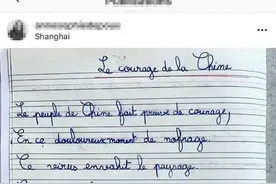 Shanghai
Le courage de la Chine
Le peuple de Chine fait preuve de courage,
En ce douloureux moment de nofrage.
Ce virus envahit le paysage.